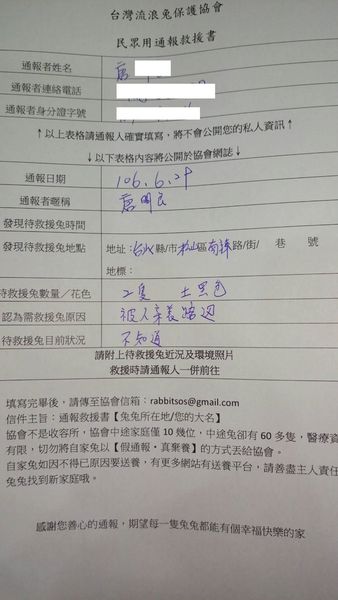 台灣流浪兔保護協會
民眾用通報救援書
通報者姓名 唐
通報者連絡電話
通報者身分證字號
↑以上表格請通報人確實填寫，將不會公開您的私人資訊↑
↓以下表格內容將公開於協會網誌↓
通報日期 106.6.29
通報者暱稱 唐明民
發現待救援兔時間
發現待救援兔地點 地址：台北縣/市松山區南路/街/ 巷 號
地標：
待救援兔數量／花色 2隻 土黑色
認為需救援兔原因 被人棄養路边
待救援兔目前狀況 不知道
請附上待救援兔近況及環境照片
救援時請通報人一併前往
填寫完畢後，請傳至協會信箱：rabbitsos@gmail.com
信件主旨：通報救援書【兔兔所在地/您的大名】
協會不是收容所，協會中途家庭僅 10 幾位，中途兔卻有 60 多隻，醫療資
有限，切勿將自家兔以【假通報・真棄養】的方式丟給協會。
自家兔如因不得已原因要送養，有更多網站有送養平台，請善盡主人責任
兔兔找到新家庭哦。
感謝您善心的通報，期望每一隻兔兔都能有個幸福快樂的家